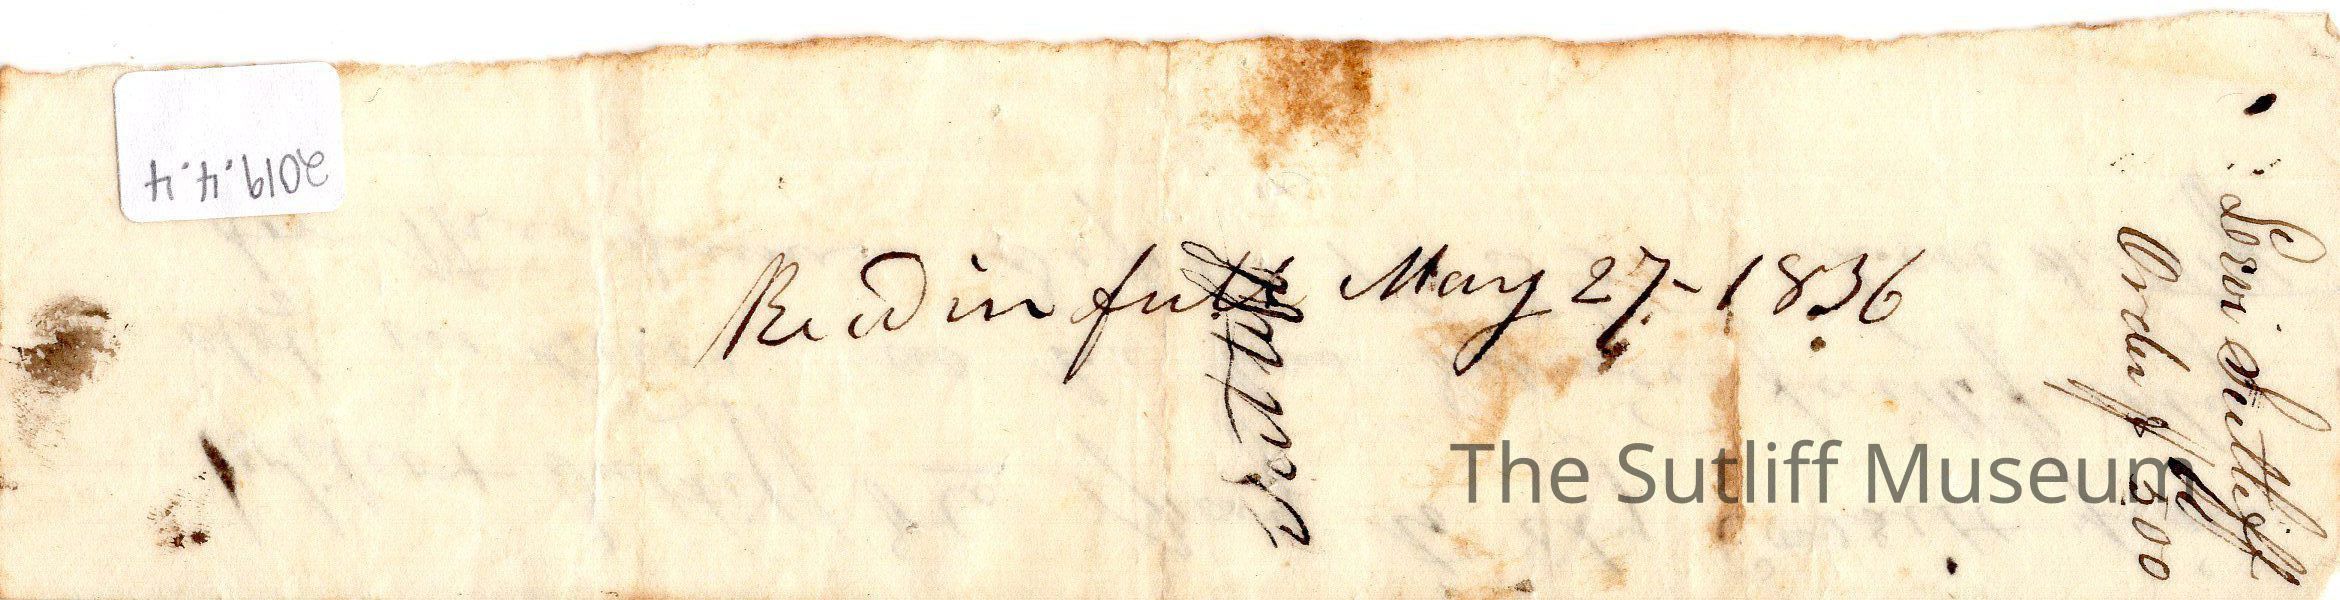 2019.4.4
Recd in full May 27-1836
Levi Sutliff
Order $ 5 00
The Sutliff Museum